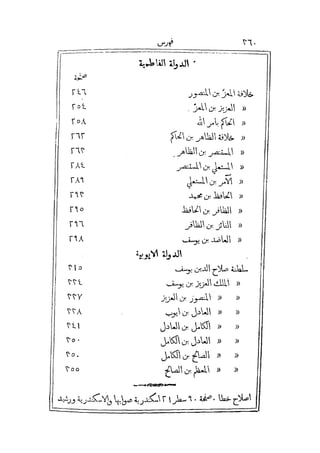 ٣٦٠ فهرس
الدولة الفاطمية
صفحة
خلافة المعزّ بن المنصور ٢٤٦
« العزيز بن المعزّ ٢٥٤
« الحاكم بامر الله ٢٥٨
« خلافة الظاهر بن الحاكم ٢٦٢
« المستنصر بن الظاهر ٢٦٣
« المستعلي بن المستنصر ٢٨٤
« الآمر بن المستعلي ٢٨٩
« الحافظ بن محمد ٢٩٣
« الظافر بن الحافظ ٢٩٥
« الفائز بن الظافر ٢٩٦
« العاضد بن يوسف ٢٩٨
الدولة الايوبية
سلطنة صلاح الدين يوسف ٣١٥
« الملك العزيز بن يوسف ٣٣٤
« « المنصور بن العزيز ٣٣٧
« « العادل بن ايوب ٣٣٨
« « الكامل بن العادل ٣٤١
« « العادل بن الكامل ٣٥٠
« « الصالح بن الكامل ٣٥٠
« « المعظم بن الصالح ٣٥٥
اصلاح خطا . صفحة ٩٠ سطر ٢١ اسكندرية صوابها والاسكندرية ورشيد